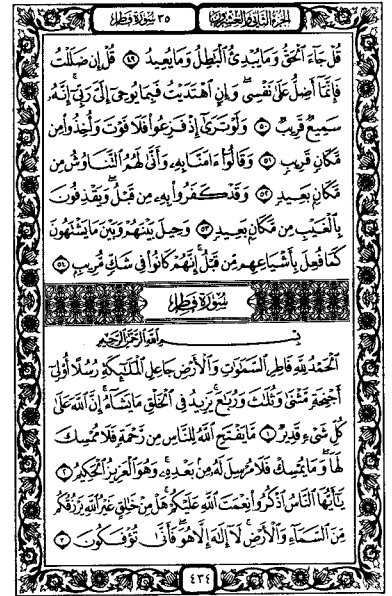 الجزء الثاني والعشرون ٣٥ سورة فاطر
قُلْ جَآءَ ٱلْحَقُّ وَمَا يُبْدِئُ ٱلْبَٰطِلُ وَمَا يُعِيدُ ٤٩ قُلْ إِن ضَلَلْتُ
فَإِنَّمَآ أَضِلُّ عَلَىٰ نَفْسِى وَإِنِ ٱهْتَدَيْتُ فَبِمَا يُوحِىٓ إِلَىَّ رَبِّىٓ إِنَّهُۥ
سَمِيعٌ قَرِيبٌ ٥٠ وَلَوْ تَرَىٰٓ إِذْ فَزِعُوا۟ فَلَا فَوْتَ وَأُخِذُوا۟ مِن
مَّكَانٍ قَرِيبٍ ٥١ وَقَالُوٓا۟ ءَامَنَّا بِهِۦ وَأَنَّىٰ لَهُمُ ٱلتَّنَاوُشُ مِن
مَّكَانٍۭ بَعِيدٍ ٥٢ وَقَدْ كَفَرُوا۟ بِهِۦ مِن قَبْلُ وَيَقْذِفُونَ
بِٱلْغَيْبِ مِن مَّكَانٍۭ بَعِيدٍ ٥٣ وَحِيلَ بَيْنَهُمْ وَبَيْنَ مَا يَشْتَهُونَ
كَمَا فُعِلَ بِأَشْيَاعِهِم مِّن قَبْلُ إِنَّهُمْ كَانُوا۟ فِى شَكٍّ مُّرِيبٍۭ ٥٤
سورة فاطر
بِسْمِ ٱللَّهِ ٱلرَّحْمَٰنِ ٱلرَّحِيمِ
ٱلْحَمْدُ لِلَّهِ فَاطِرِ ٱلسَّمَٰوَٰتِ وَٱلْأَرْضِ جَاعِلِ ٱلْمَلَٰٓئِكَةِ رُسُلًا أُو۟لِىٓ
أَجْنِحَةٍ مَّثْنَىٰ وَثُلَٰثَ وَرُبَٰعَ يَزِيدُ فِى ٱلْخَلْقِ مَا يَشَآءُ إِنَّ ٱللَّهَ عَلَىٰ
كُلِّ شَىْءٍ قَدِيرٌ ١ مَّا يَفْتَحِ ٱللَّهُ لِلنَّاسِ مِن رَّحْمَةٍ فَلَا مُمْسِكَ
لَهَا وَمَا يُمْسِكْ فَلَا مُرْسِلَ لَهُۥ مِنۢ بَعْدِهِۦ وَهُوَ ٱلْعَزِيزُ ٱلْحَكِيمُ ٢
يَٰٓأَيُّهَا ٱلنَّاسُ ٱذْكُرُوا۟ نِعْمَتَ ٱللَّهِ عَلَيْكُمْ هَلْ مِنْ خَٰلِقٍ غَيْرُ ٱللَّهِ يَرْزُقُكُم
مِّنَ ٱلسَّمَآءِ وَٱلْأَرْضِ لَآ إِلَٰهَ إِلَّا هُوَ فَأَنَّىٰ تُؤْفَكُونَ ٣
٤٣٤